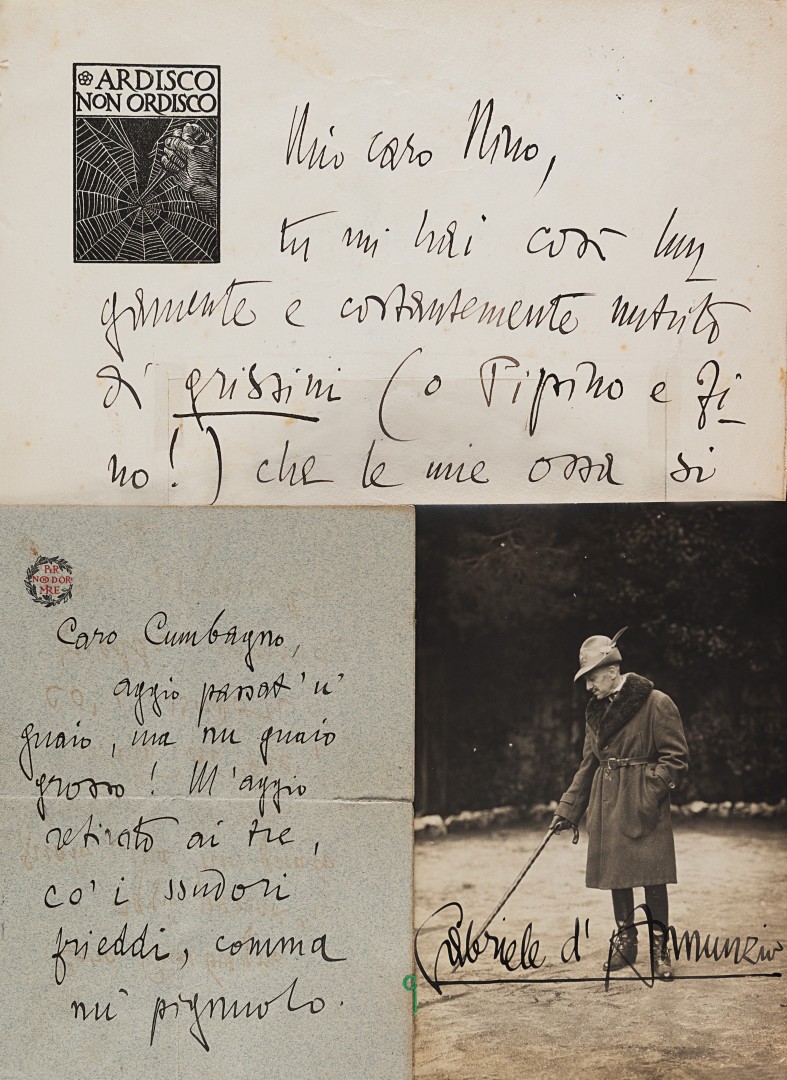 ARDISCO
NON ORDISCO
Mio caro Nino,
tu mi hai così lun
gamente e costantemente nutrito
di grissini (o Pipino e Fi
no!) che le mie ossa si
PER
NON DOR
MIRE
Caro Cumbagno,
aggio passat' u'
guaio, ma nu guaio
grosso! M'aggio
retirato ai tre,
co' i ssudori
frieddi, comma
nu' pignuolo.
Gabriele d'Annunzio